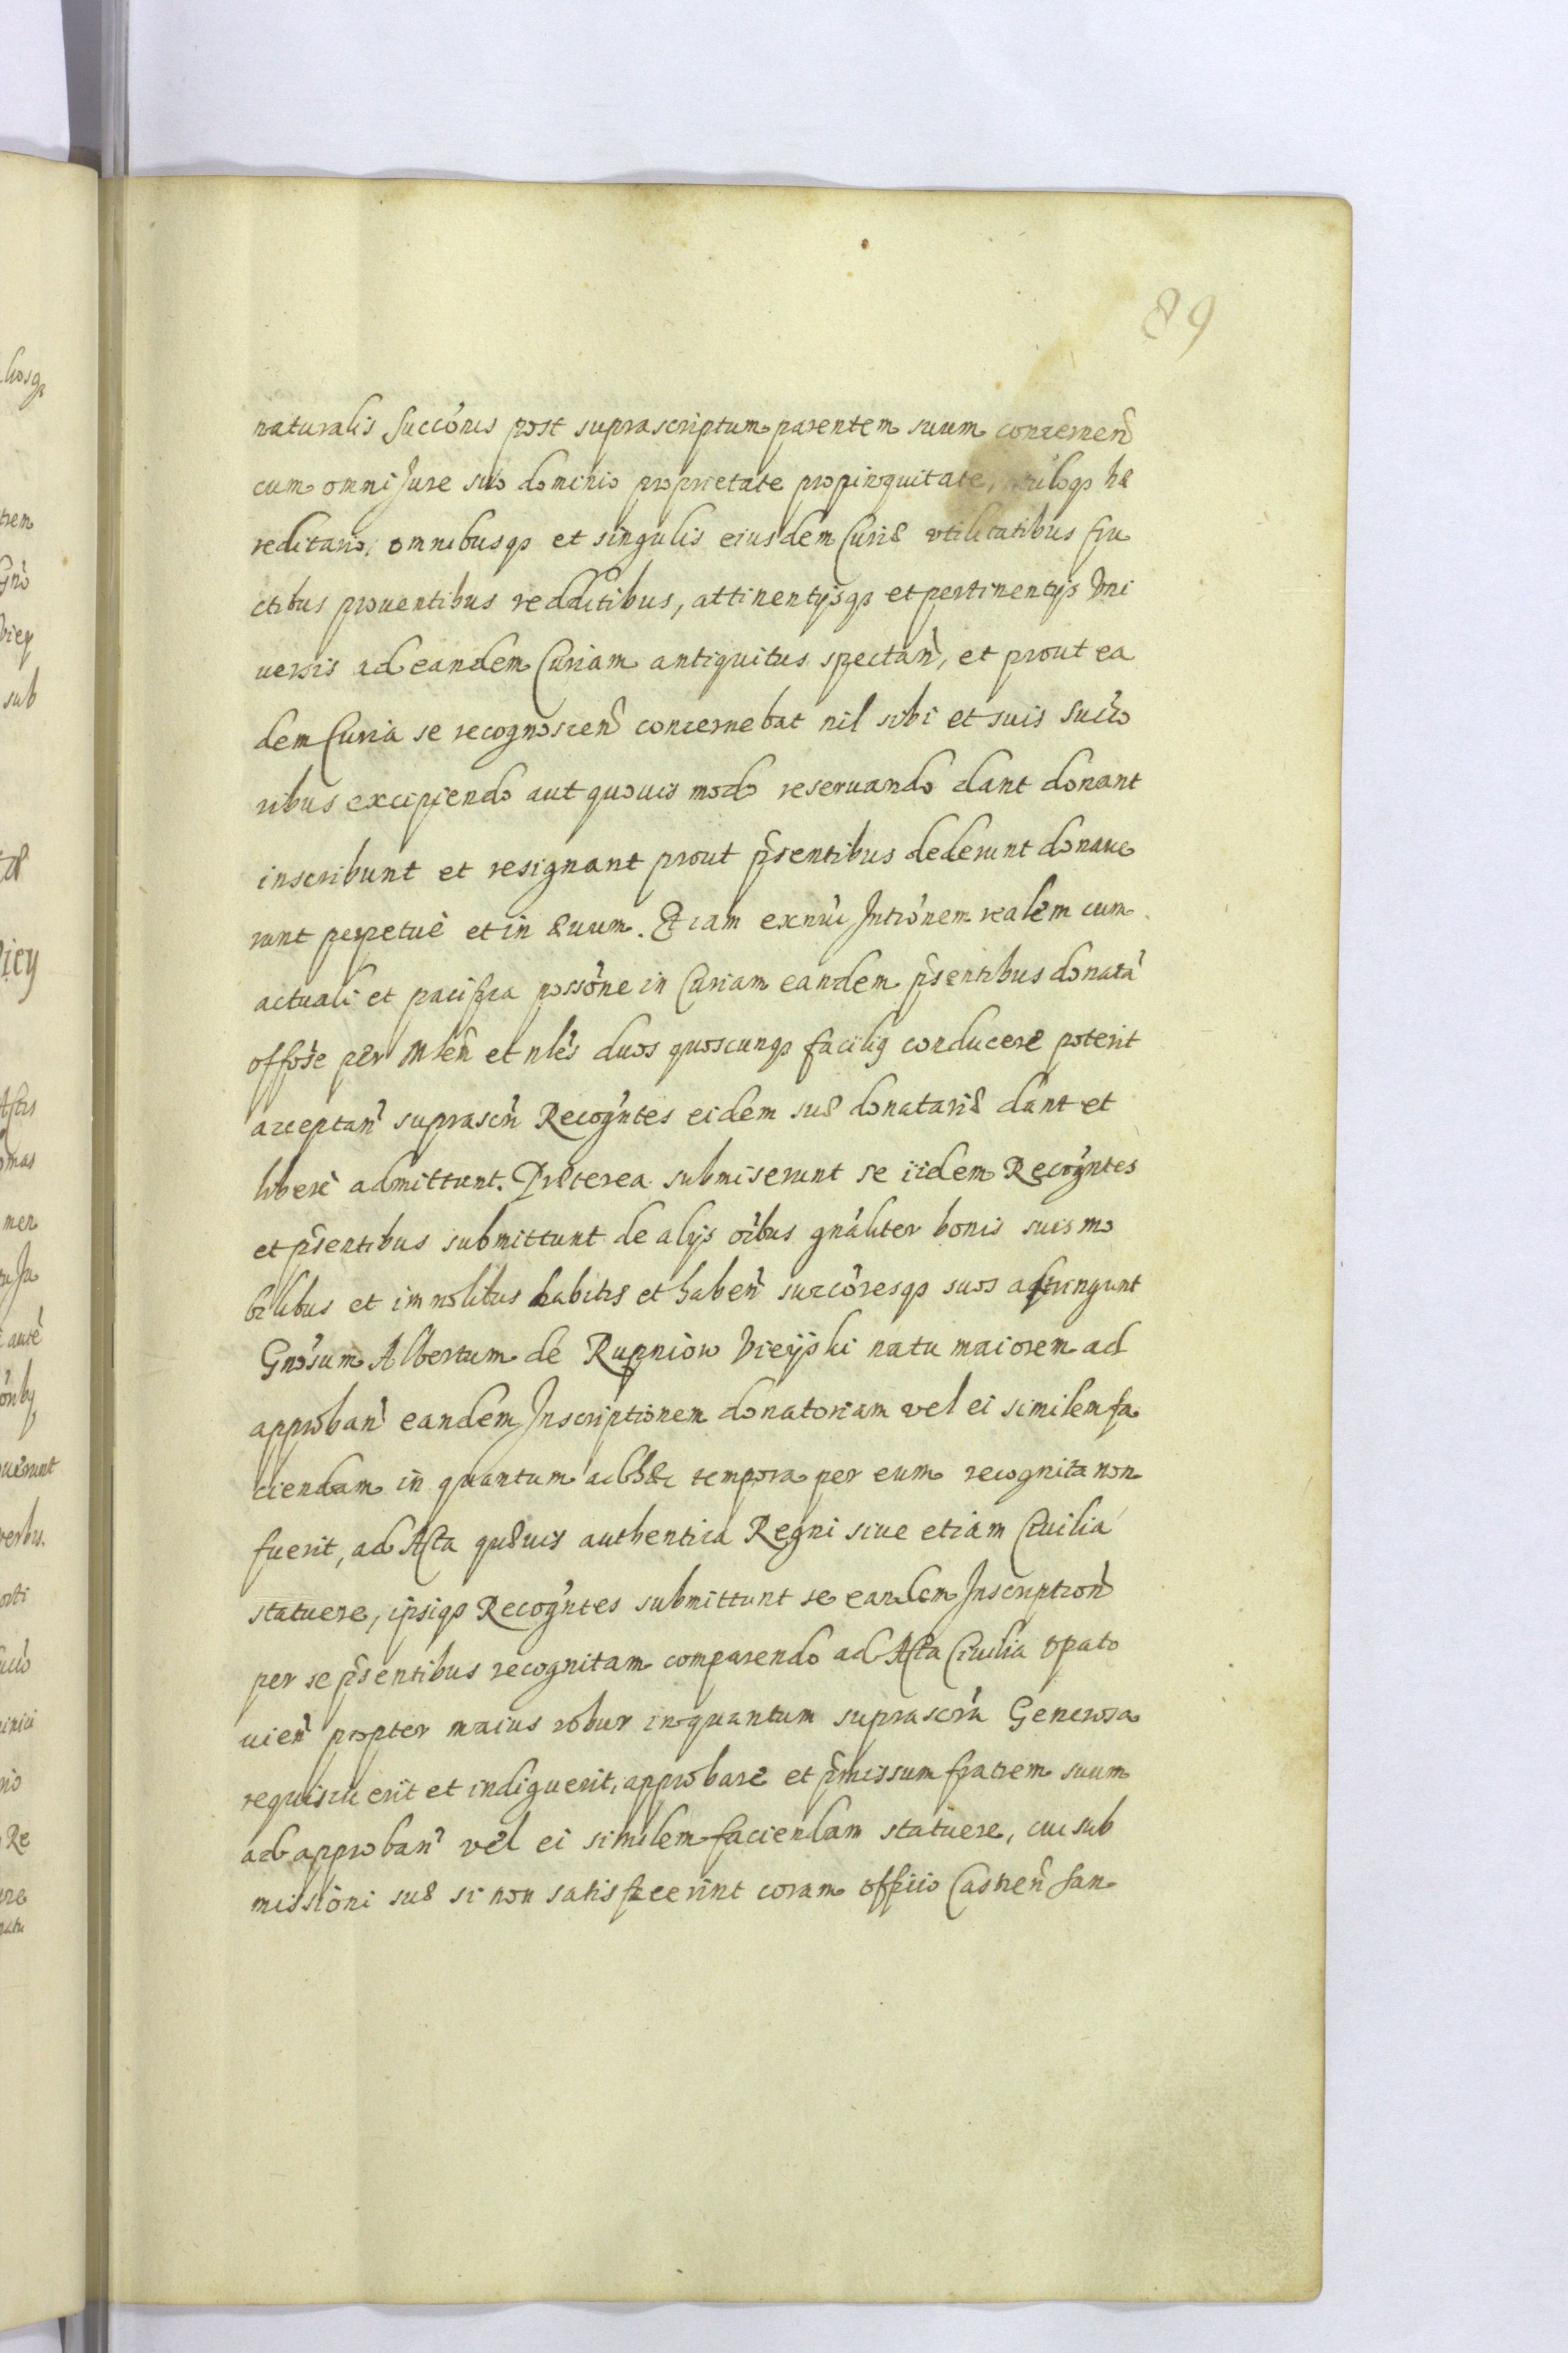 89
naturalis succonis post suprascriptum parentem suum concernen
cum omni Jure suo dominio proprietate propinquitate, titulogs hæ
reditario, omnibusqs et singulis eiusdem Curiæ vtilitatibus fru
ctibus prouentibus redditibus, attinentijsqs et pertinentijs Vni
uersis ad eandem Curiam antiquitus spectan, et prout ea
dem Curia se recognoscen concernebat nil sibi et suis Succo
ribus excipiendo aut quouis modo reseruando dant donant
inscribunt et resignant prout pñsentibus dederunt donaue
runt perpetuè et in æuum. Etiam exnuc Intronem realem cum
actuali et pacifica possone in Curiam eandem pñsentibus donatã
offose per Mlen et nles duos quoscunqs facilig conducere poterit
acceptan suprascr Recogntes eidem suæ donatariæ dant et
liberè admittunt. Præterea submiserunt se iidem Recogntes
et pñsentibus submittunt de alijs oibus gnaliter bonis suis mo
bilibus et immolibus habitis et haben succoresqs suos adstringunt
Gnosum Albertum de Rupniow Vieyski natu maiorem ad
approban eandem Inscriptionem donatoriam vel ei similem fa
ciendam in quantum ad hæc tempora per eum recognita non
fuerit, ad Acta quæuis authentica Regni siue etiam Ciuilia
statuere, ipsiqs Recogntes submittunt se eandem Inscription
per se pñsentibus recognitam comparendo ad Acta Ciuilia Opato
uien propter maius robur inquantum suprascra Generosa
requisiuerit et indiguerit, approbare et pmissum fratrem suum
ad approban vel ei similem faciendam statuere, cui sub
missioni suæ si non satisfecerint coram officio Castren San